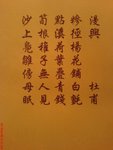 漫興 杜甫
糝徑楊花鋪白氈
點溪荷葉疊青錢
筍根稚子無人見
沙上鳧雛傍母眠